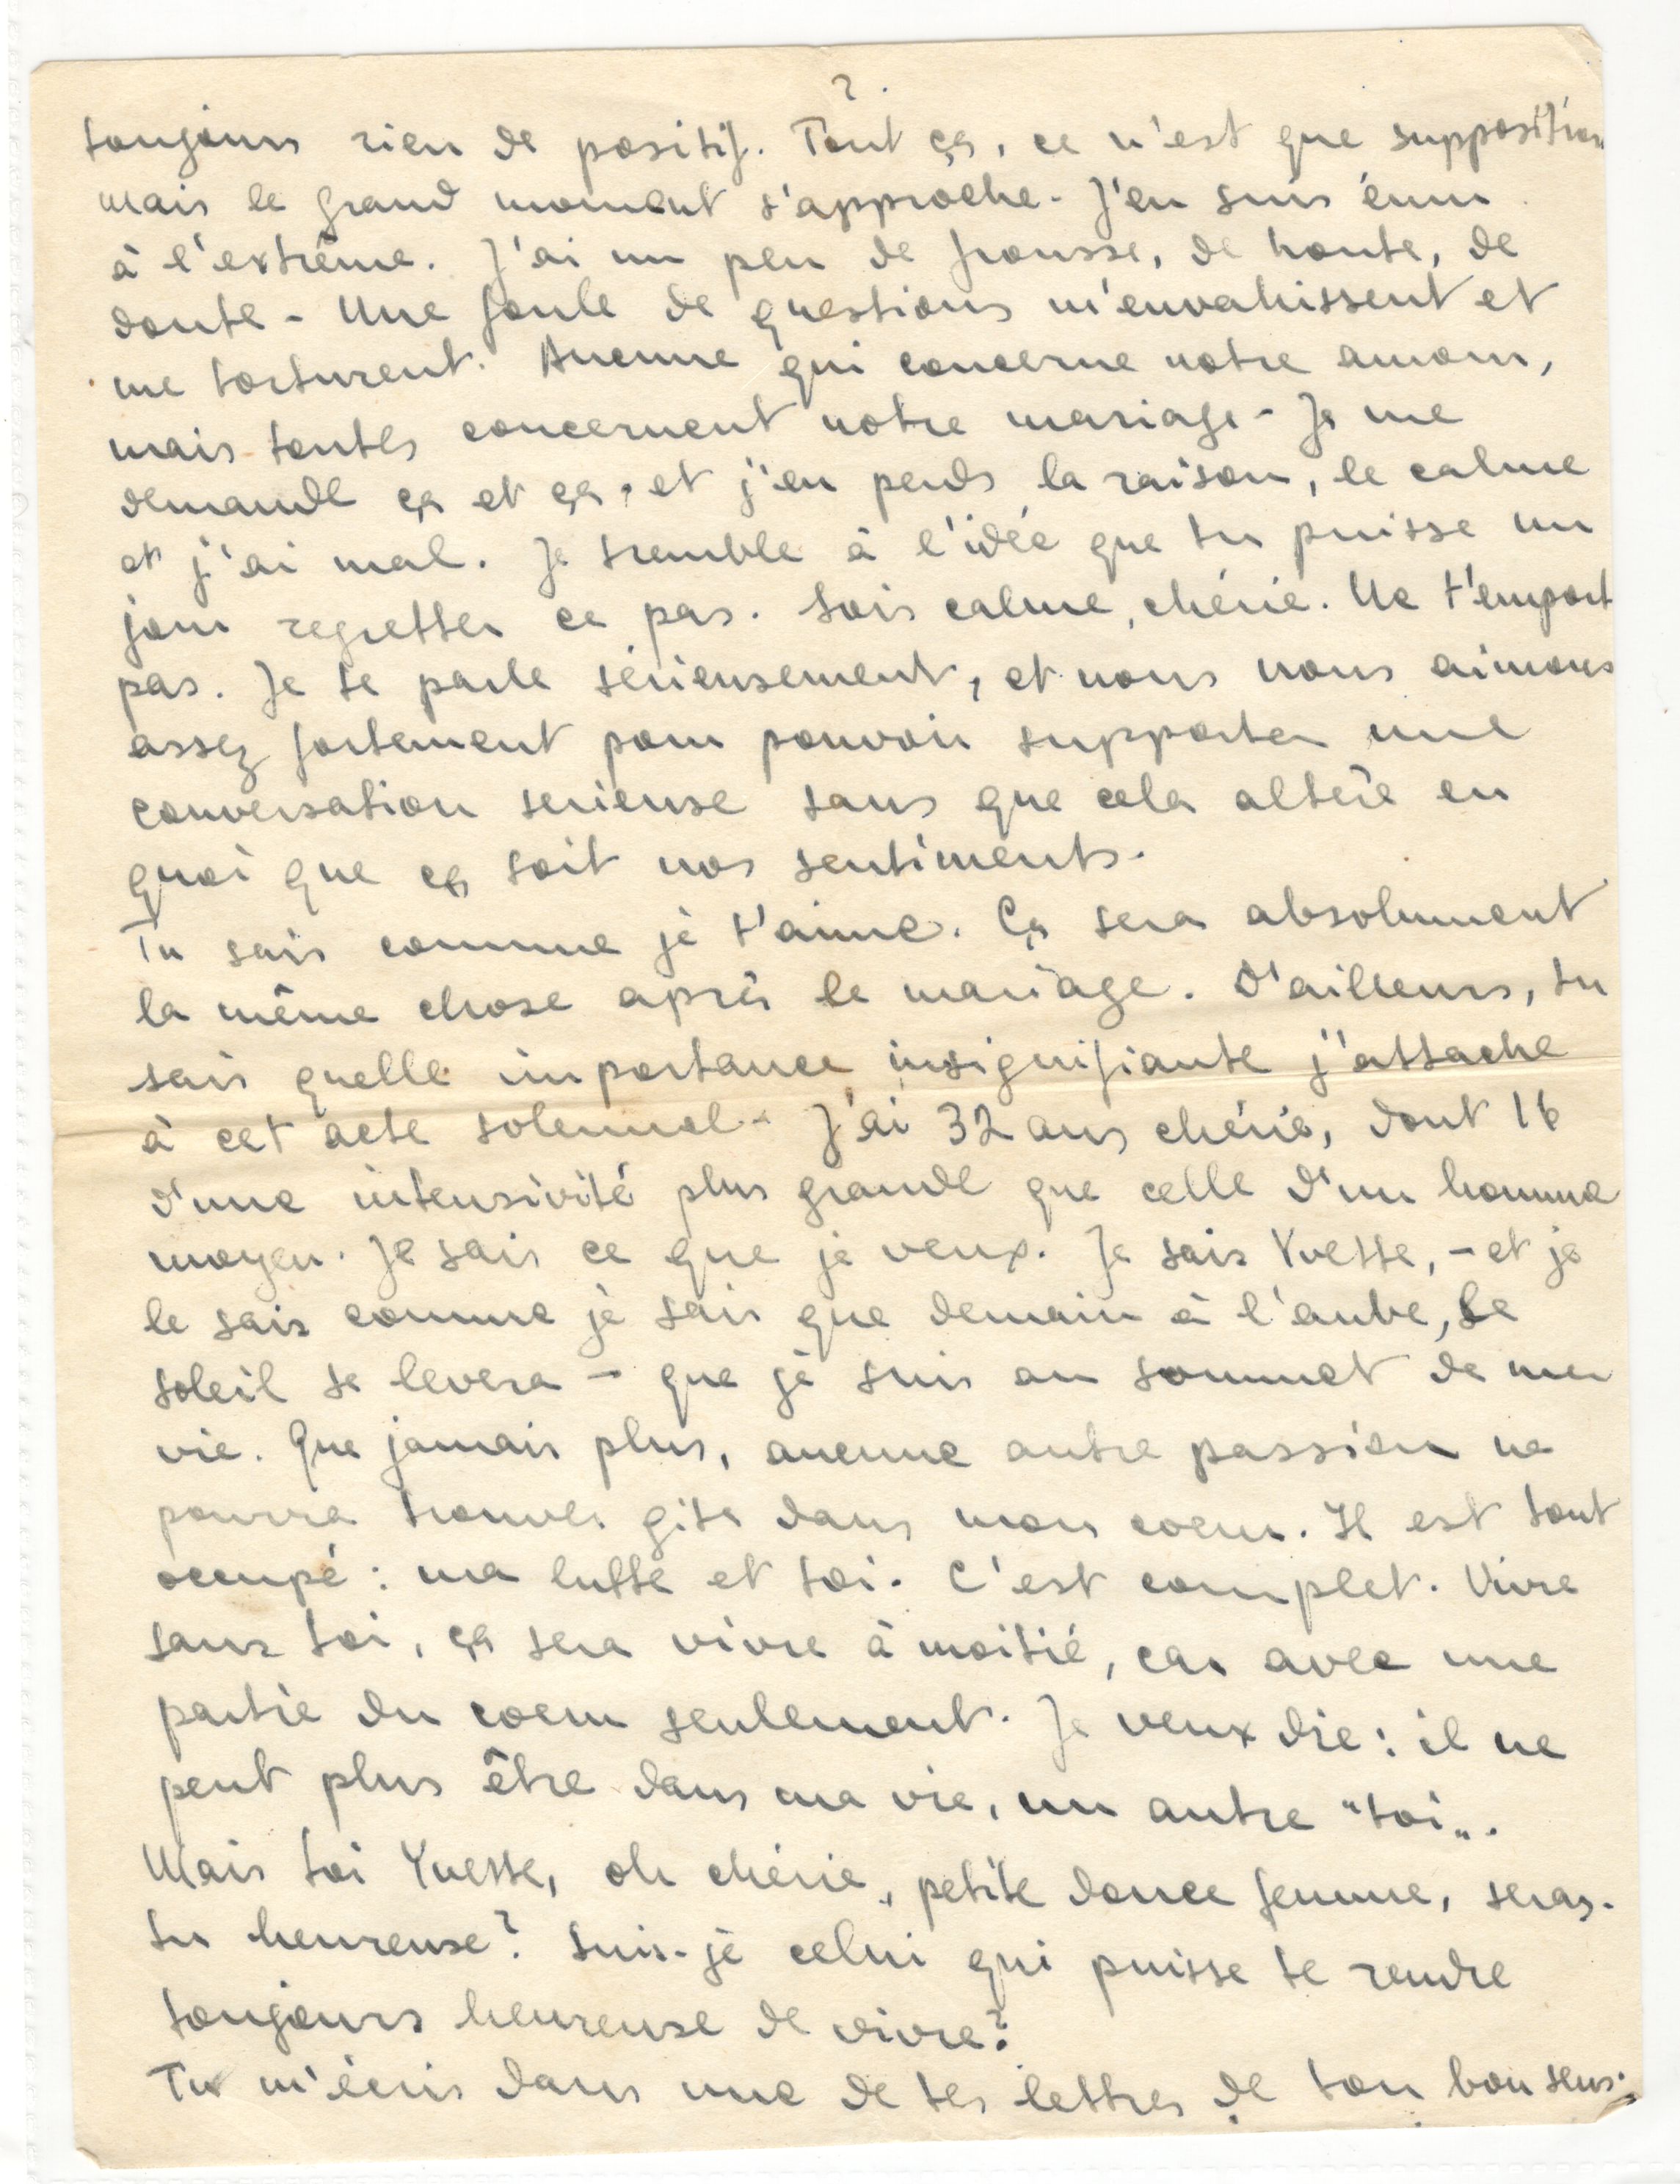 2.
toujours rien de positif. Tout ça, ce n'est que supposition
mais le grand moment s'approche. J'en suis ému
à l'extrême. J'ai un peu de frousse, de honte, de
doute - Une foule de questions m'envahissent et
me torturent. Aucune qui concerne notre amour,
mais toutes concernent notre mariage - Je me
demande ça et ça, et j'en perds la raison, le calme
et j'ai mal. Je tremble à l'idée que tu puisse un
jour regretter ce pas. Sois calme, chérie. Ne t'emport
pas. Je te parle sérieusement, et nous nous aimons
assez fortement pour pouvoir supporter une
conversation serieuse sans que cela altère en
quoi que ça soit nos sentiments.
Tu sais comme je t'aime. Ça sera absolument
la même chose après le mariage. D'ailleurs, tu
sais quelle importance insignifiante j'attache
à cet acte solennel - J'ai 32 ans chérie, dont 16
d'une intensivité plus grande que celle d'un homme
moyen. Je sais ce que je veux. Je sais Yvette, - et je
le sais comme je sais que demain à l'aube, le
soleil se levera - que je suis au sommet de ma
vie. Que jamais plus, aucune autre passion ne
pourra trouver gite dans mon coeur. Il est tout
occupé : ma lutte et toi. C'est complet. Vivre
sans toi, ça sera vivre à moitié, car avec une
partie du coeur seulement. Je veux die : il ne
peut plus être dans ma vie, un autre "toi".
Mais toi Yvette, oh chérie, petite douce femme, seras-
tu heureuse? Suis-je celui qui puisse te rendre
toujours heureuse de vivre?
Tu m'écris dans une de tes lettres de ton bon sens.